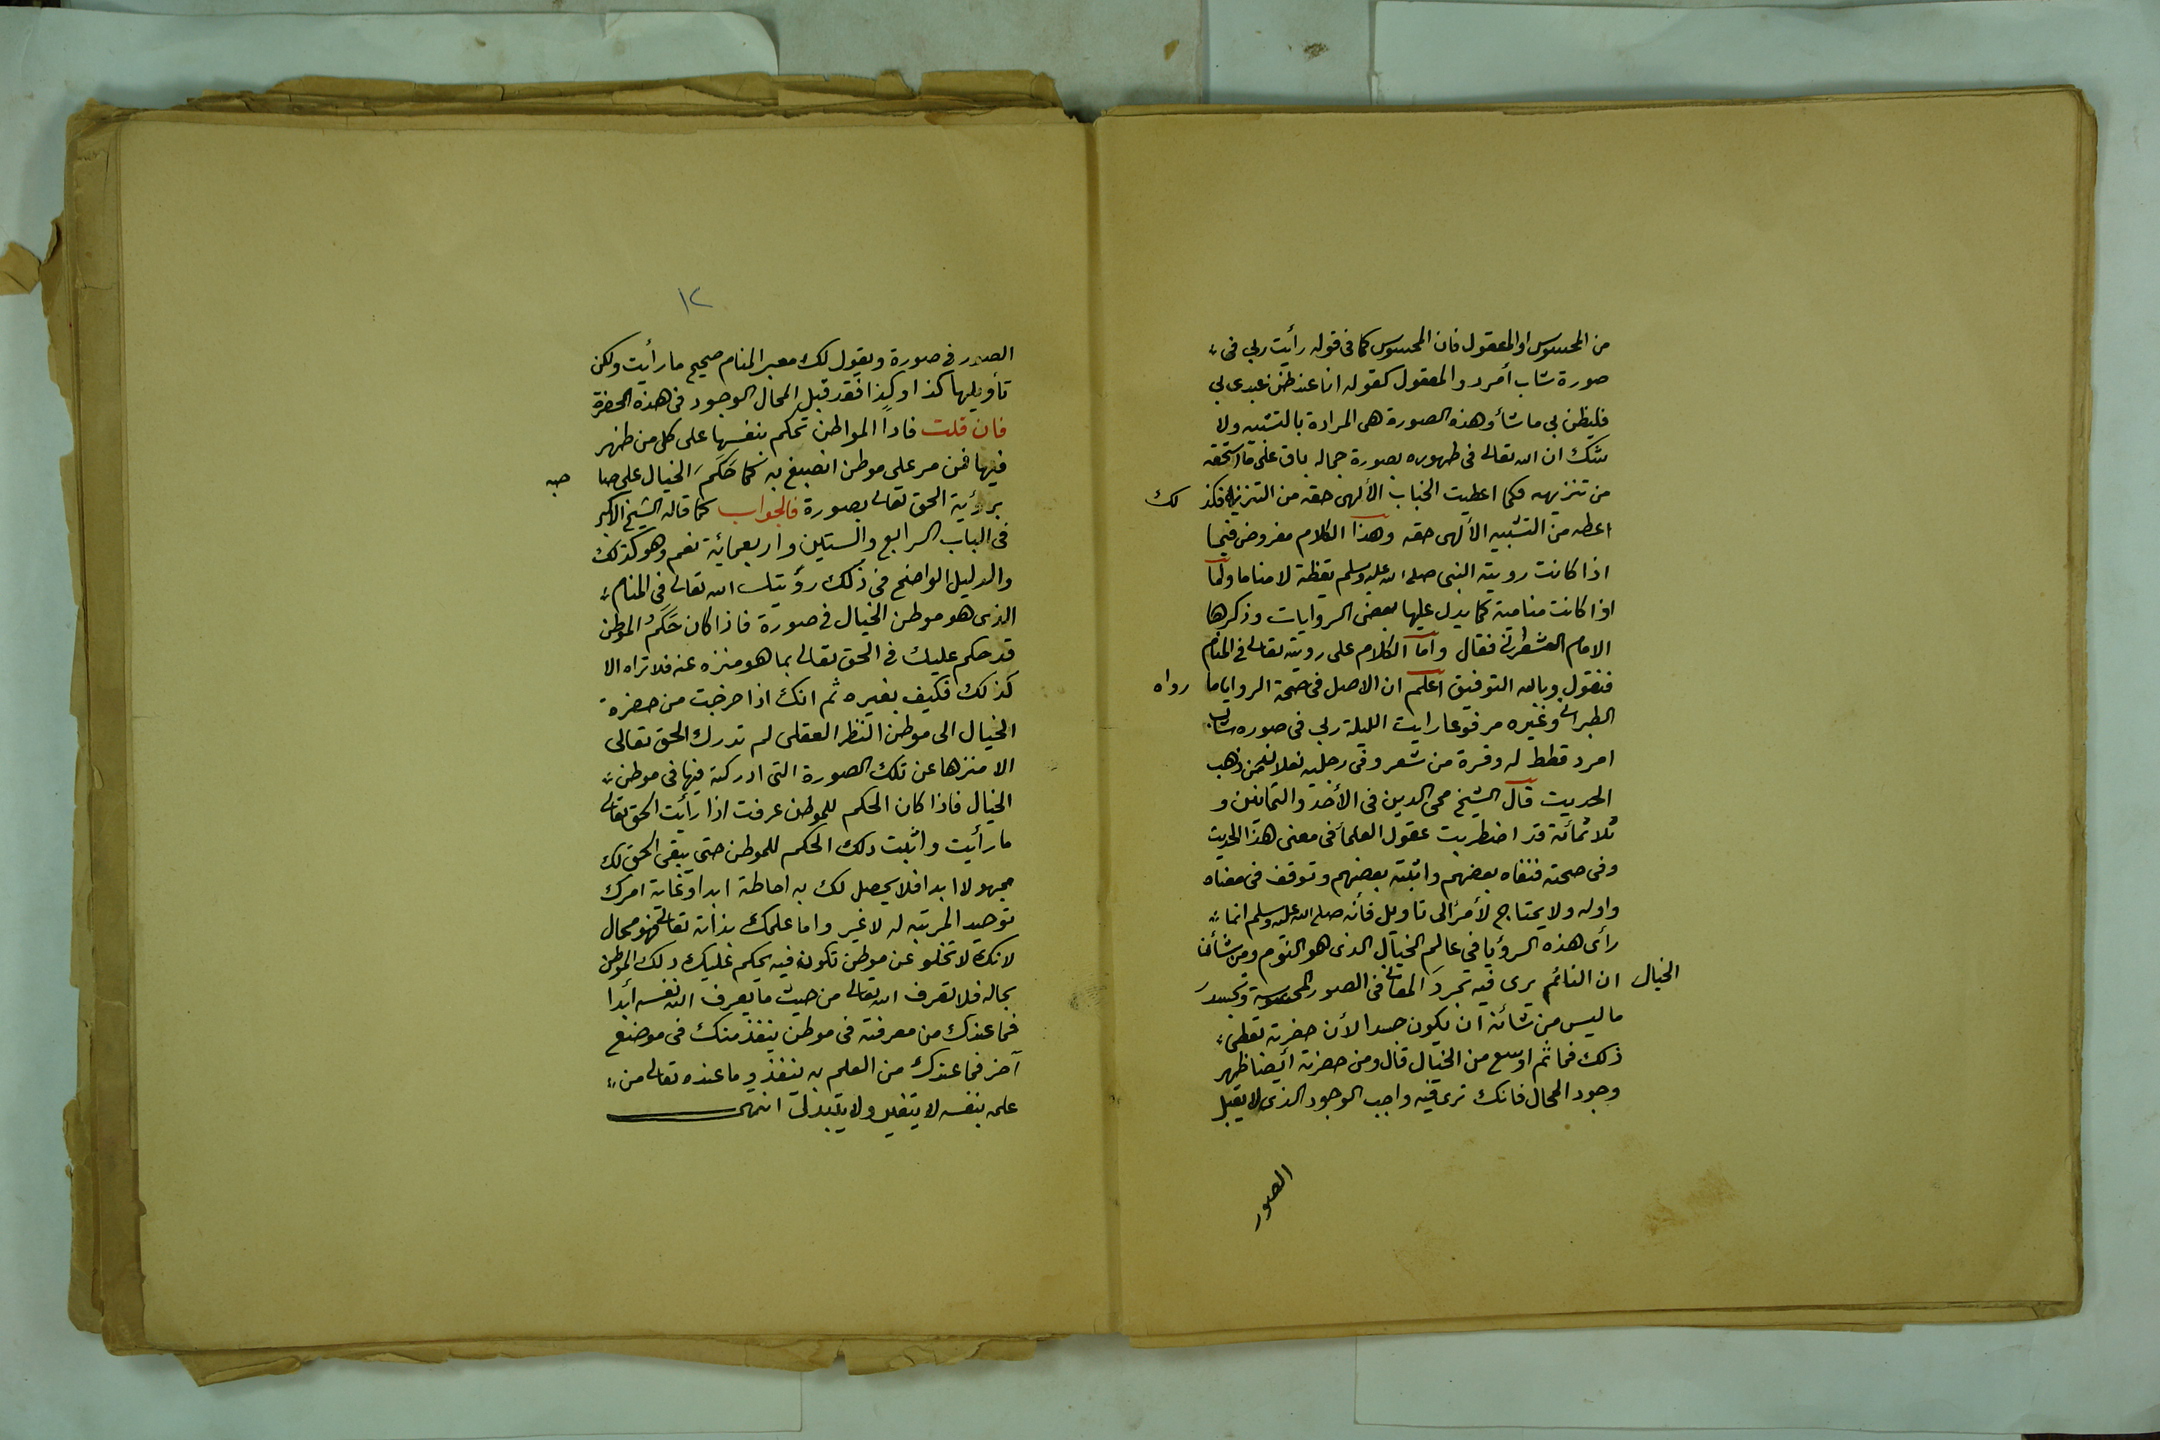 من المحسوس او المعقول فان المحسوس كما فى قوله رأيت ربى فى
صورة شاب أمرد والمعقول كقوله انا عند ظن عبدى بى
فليظن بى ما شأ وهذه الصورة هى المرادة بالتشبيه ولا
شك ان الله تعالى فى ظهوره بصورة جماله باق على ما استحقه
من تنزيهه فكما اعطيت الجناب الألهى حقه من التنزيه فكذ لك
اعطه من التشبيه الألهى حقه وهذا الكلام مفروض فيما
اذا كانت رويته النبى صلى الله عليه وسلم يقظة لا مناما ولما
اذا كانت منامية كما يدل عليها بعض الروايات وذكرها
الامام الشعرانى فقال واما الكلام على رويته تعالى فى المنام
فنقول وبالله التوفيق اعلم ان الاصل فى صحة الروايا ما رواه
الطبرانى وغيره مرفوعا رايت الليلة ربى فى صوره شاب
امرد قطط له وفرة من شعر وفى رجليه نعلان من ذهب
الحديث قال الشيخ محى الدين فى الأحد والثمانين و
ثلاثمأئة قد اضطربت عقول العلمأ فى معنى هذا الحديث
وفى صحته فنفاه بعضهم واثبته بعضهم وتوقف فى معناه
واوله ولا يحتاج لأمر الى تاويل فأنه صلى الله عليه وسلم انما
رأى هذه الرؤيا فى عالم الخيال الذى هو النوم ومن شأن
الخيال ان النائم يرى فيه تجرد المعانى فى الصور المحسوسة وتجسد
ما ليس من شأنه ان يكون جسدا لأن حضرته تعطى
ذلك فما ثم اوسع من الخيال قال ومن حضرته أيضا ظهر
وجود المحال فانك ترى فيه واجب الوجود الذى لا يقبل
الصور
١٢
الصور فى صورة ويقول لك معبر المنام صحيح ما رأيت ولكن
تأويلها كذا وكذا فقد قبل المحال الوجود فى هذه الحضرة
فان قلت فاذا المواطن تحكم بنفسها على كل من ظهر
فيها فمن مر على موطن انصبغ به كما حَكَمَ الخيال على صا حبه
برؤية الحق تعالى بصورة فالجواب كما قاله الشيخ الاكبر
فى الباب الرابع والستين واربعمائة نعم وهو كذلك
والدليل الواضح فى ذلك رؤيتك الله تعالى فى المنام
الذى هو موطن الخيال فى صورة فاذا كان حَكَمَ الموطن
قد حكم عليك فى الحق تعالى بما هو منزه عنه فلا تراه الا
كذلك فكيف بغيره ثم انك اذا خرجت من حضرة
الخيال الى موطن النظر العقلى لم تدرك الحق تعالى
الا منزها عن تلك الصورة التى ادركته فيها فى موطن
الخيال فاذا كان الحكم للموطن عرفت اذا رأيت الحق تعالى
ما رأيت واثبت ذلك الحكم للموطن حتى يبقى الحق لك
مجهولا ابدا فلا يحصل لك به احاطة ابدا وغاية امرك
توحيد المرتبه له لا غير واما علمك بذاته تعالى فهو محال
لانك لا تخلو عن موطن تكون فيه يحكم عليك ذلك الموطن
بحاله فلا تعرف الله تعالى من حيث ما يعرف الله نفسه أبدا
فما عندك من معرفته فى موطن ينفذ منك فى موضع
آخر فما عندك من العلم به ينفذ وما عنده تعالى من
علمه بنفسه لا يتغير ولا يتبدل انتهى